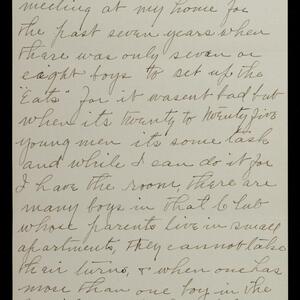 meeting at my home for
the past seven years when
there was only seven or
eaght boys to set up the
"Eats" for it wasent bad but
when its twenty to twenty five
young men its some task
and while I can do it for
I have the room, there are
many boys in that Club
whose parents live in small
apartments, they cannot take
their turns, & when one has
more than one boy in the